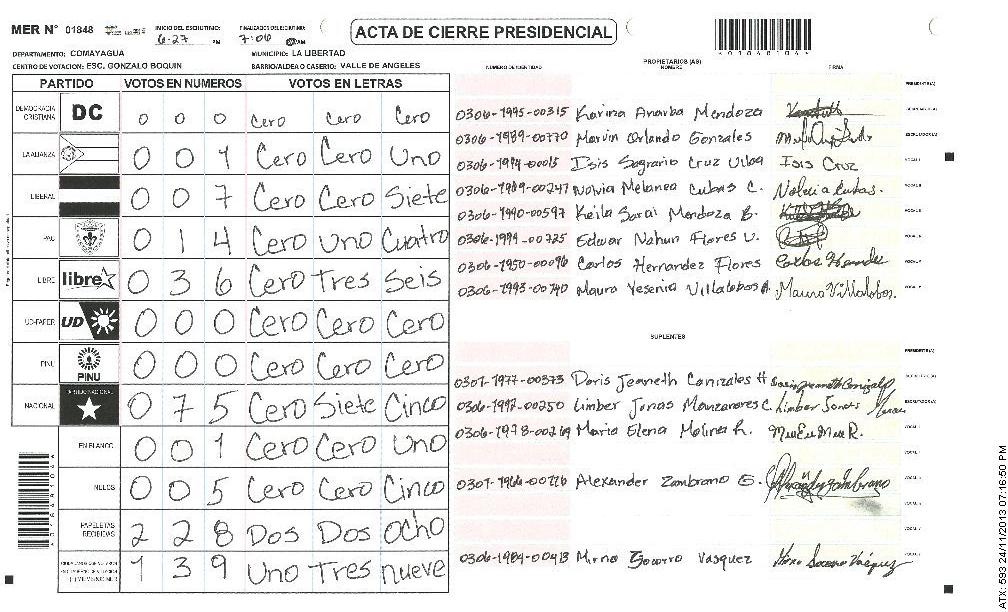 MER N° 01848
INICIO DEL ESCRUTINIO:
6-27 PM
FINALIZADOS DEL ESCRUTINIO:
7:06 AM
ACTA DE CIERRE PRESIDENCIAL
*01848104*
DEPARTAMENTO: COMAYAGUA
MUNICIPIO: LA LIBERTAD
CENTRO DE VOTACION: ESC. GONZALO BOQUIN
BARRIO/ALDEA O CASERIO: VALLE DE ANGELES
PARTIDO VOTOS EN NUMEROS VOTOS EN LETRAS
DEMOCRACIA CRISTIANA DC 0 0 0 Cero Cero Cero
LA ALIANZA 0 0 1 Cero Cero Uno
LIBERAL 0 0 7 Cero Cero Siete
PAC 0 1 4 Cero Uno Cuatro
LIBRE libre 0 3 6 Cero Tres Seis
UD-FAPER UD 0 0 0 Cero Cero Cero
PINU PINU 0 0 0 Cero Cero Cero
NACIONAL PARTIDO NACIONAL 0 7 5 Cero Siete Cinco
EN BLANCO 0 0 1 Cero Cero Uno
NULOS 0 0 5 Cero Cero Cinco
PAPELETAS RECIBIDAS 2 2 8 Dos Dos Ocho
1 3 9 Uno Tres nueve
NUMERO DE IDENTIDAD
PROPIETARIOS (AS)
NOMBRE
FIRMA
PRESIDENTE(A)
0306-1995-00315 Karina Mendoza
0306-1989-00770 Marvin Orlando Gonzales
ESCRUTADOR(A)
0306-1994-00015 Isis Sagrario Cruz Ulloa Isis Cruz
VOCAL I
0306-1989-00247 Nolvia Melanea Cubas C. Nolvia Cubas.
0306-1990-00597 Keila Sarai Mendoza B.
0306-1994-00725 Edwar Nahun Flores U.
0306-1950-00096 Carlos Hernandez Flores
0306-1993-00740 Maura Yesenia Villalobos A. Maura Villalobos.
SUPLENTES
PRESIDENTE(A)
0301-1977-00373 Doris Jeaneth Canizales H
0306-1997-00250 Limber Jonas Manzanares C. Limber Jonas
ESCRUTADOR(A)
0306-1978-00269 Maria Elena Molina R.
0301-1966-00776 Alexander Zambrano G.
0306-1984-00413 Mirna Socorro Vasquez
*01848104*
ATX: 593 24/11/2013 07:16:50 PM